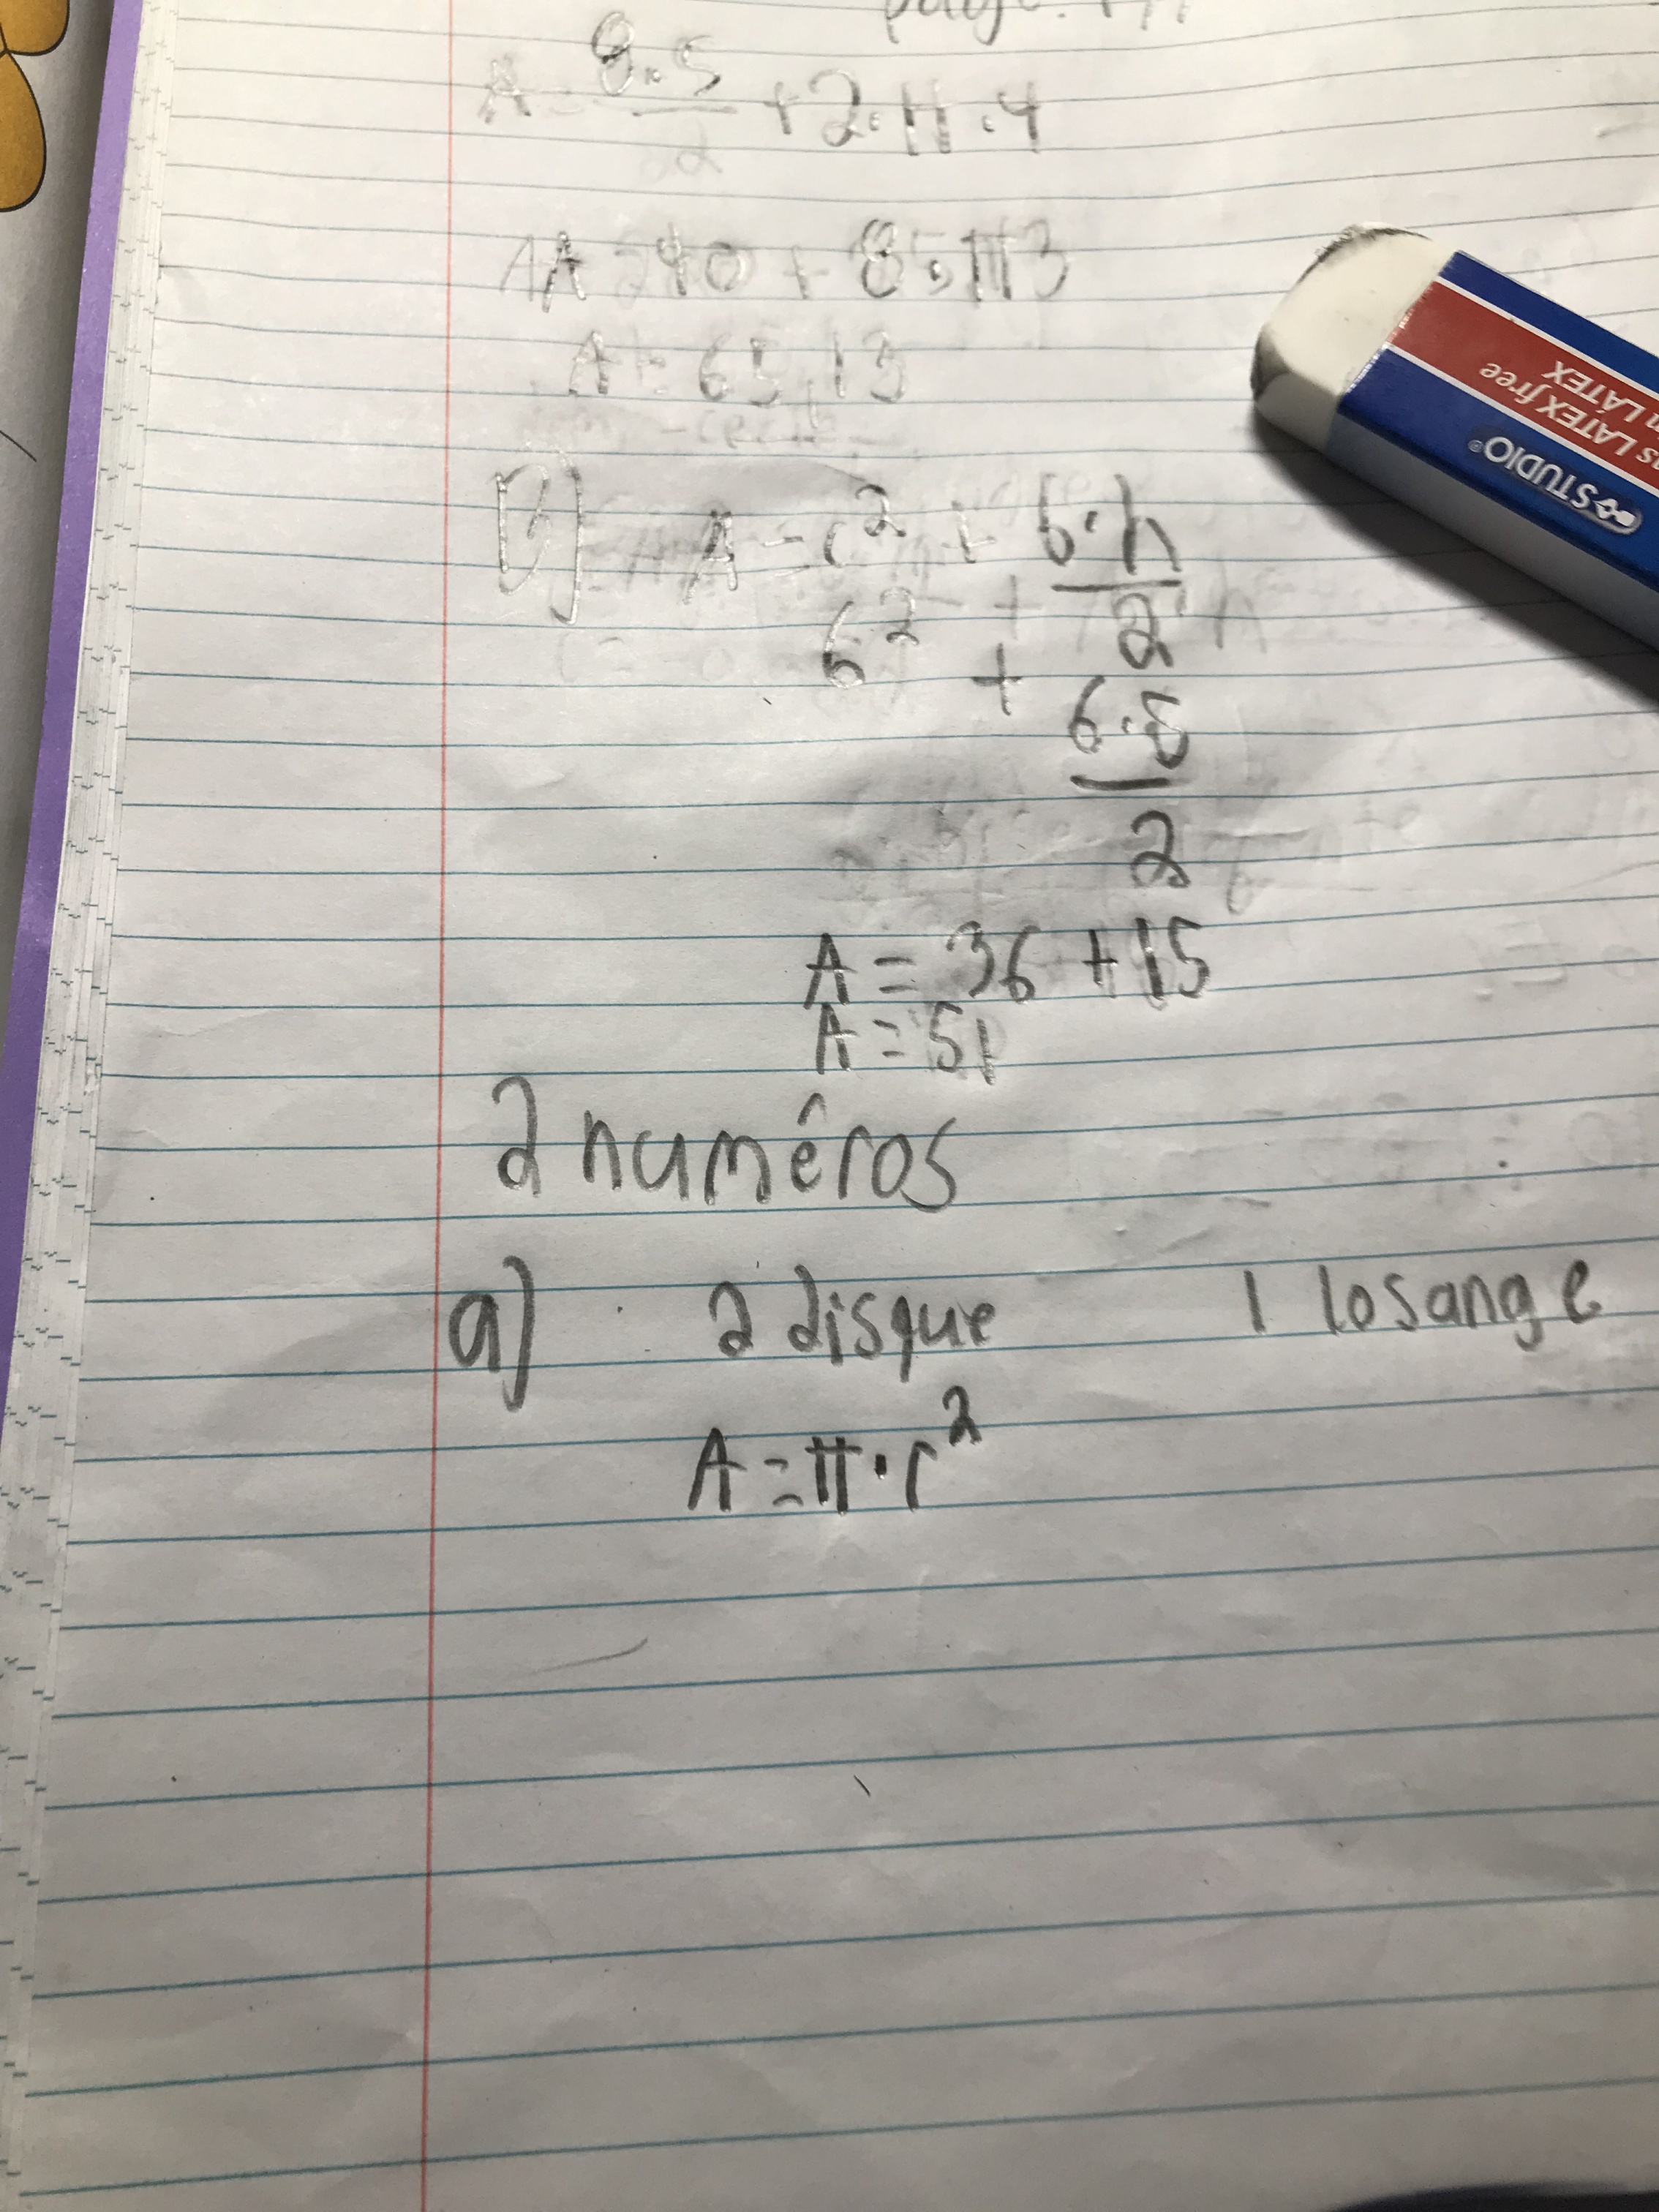 page.
A = 8.5 + 2.π.4
2
A 40 + 8.π
A = 65,13
B) A = c² + b.h
2
6² + 6.5
2
A = 36 + 15
A = 51
2 numéros
a) 2 disque 1 losange
A = π.r²
STUDIO
LATEX free
LATEX